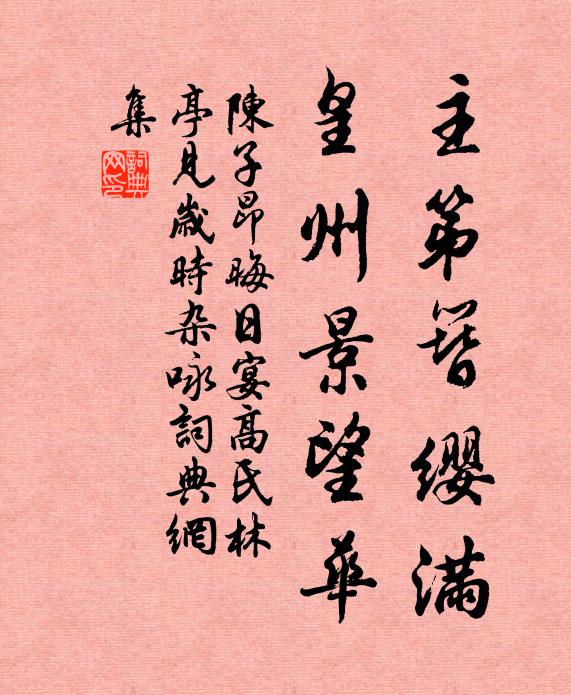 主第簪纓满
皇州景望華
陳子昂晦日宴高氏林
亭見歲時杂咏詞典網
集
詞典
网印